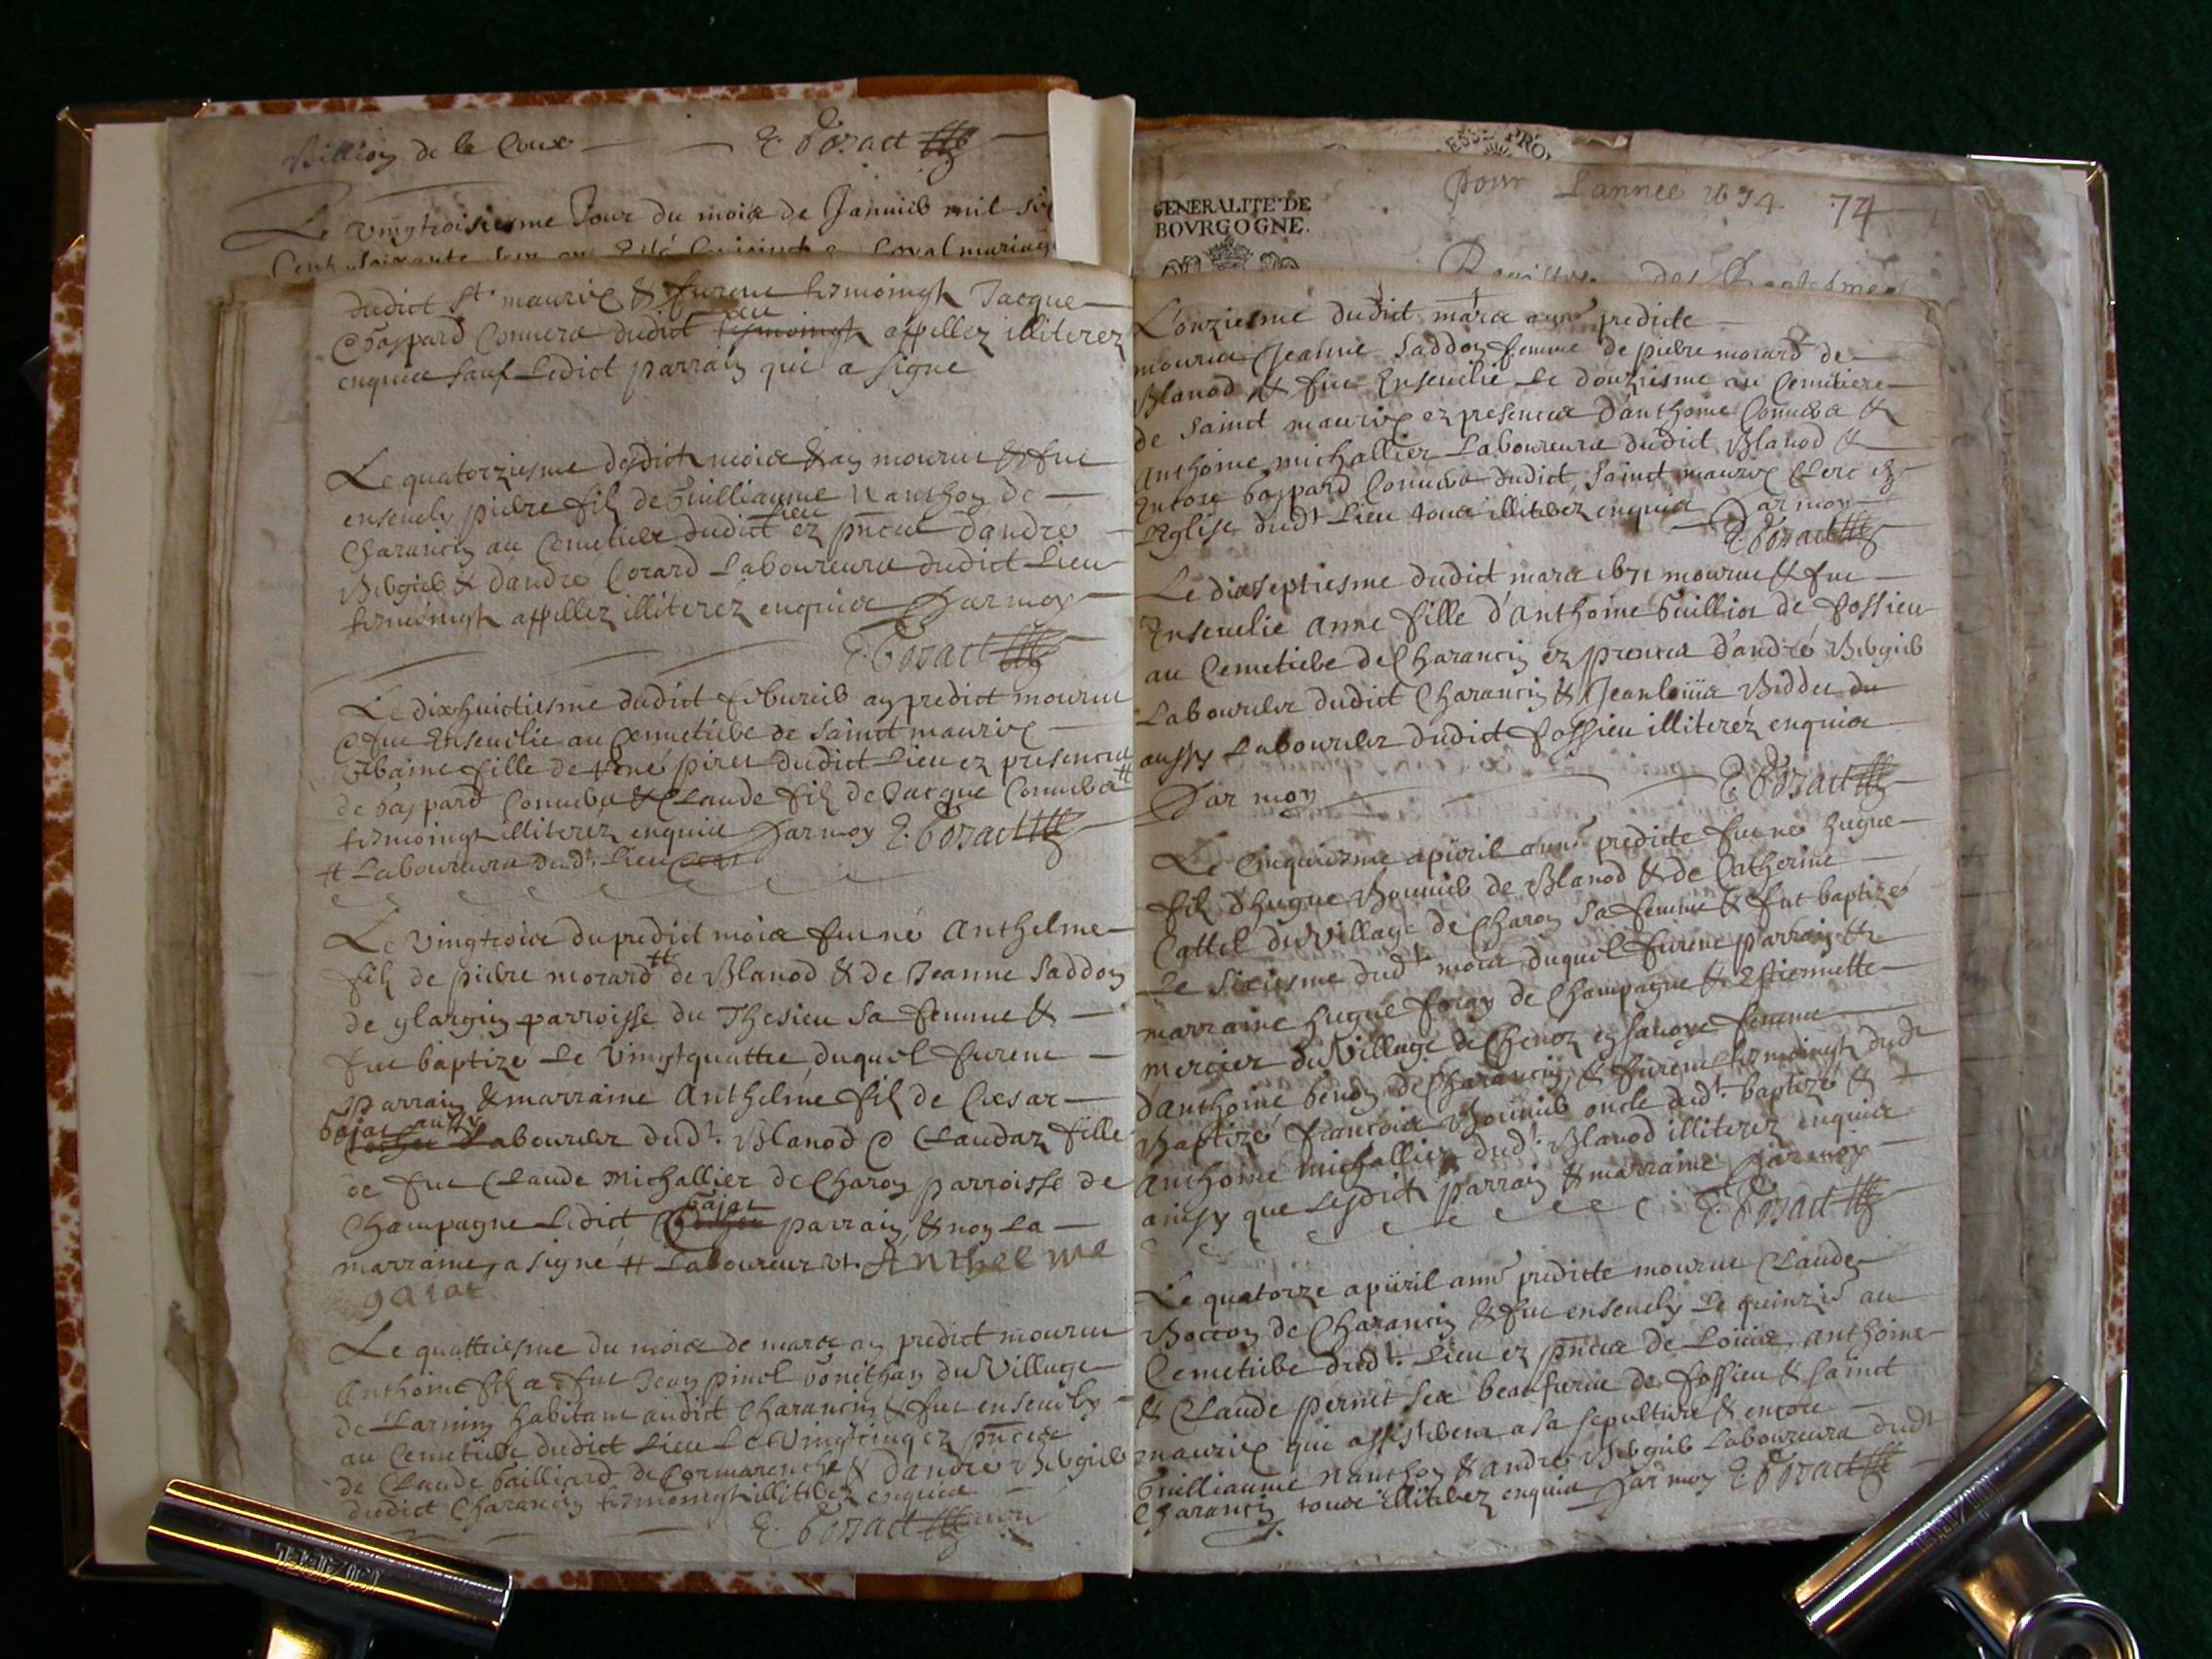 Billion de la Coux
Le vingtroisiesme Jour du mois de Janvier mil six
Cent soixante
dudict St. maurix & furent tesmoingts Jacque
& Gaspard Convers dudict lieu appellez illiterez
enquis sauf Ledict parrain qui a signé
Le quatorziesme desdicts mois & an mourut & fut
ensevely pierre filz de Guilliaume Nanthon de
Charancin au Cemetiere dudict lieu ez pnce d'andré
& d'andré Corard Laboureurs dudict Lieu
tesmoingts appellez illiterez enquis Par moy
Le dixhuictiesme dudict febvrier an predict mourut
& fut Ensevelie au Cemetiere de Sainct maurix
fille de René piret dudict Lieu ez presence
de Gaspard Convers & Claude filz de Jacque Convers #
tesmoingts illiterez enquis Par moy
# Laboureurs dudt. Lieu
Le vingtrois du predict mois fut né Anthelme
filz de pierre morard # de Blanod & de Jeanne Saddon
de glargin parroisse du Thesieu sa femme &
fut baptizé Le vingtquattre, duquel furent
parrain & marraine Anthelme filz de Cæsar
gajat aussy Laboureur dudt. Blanod & Claudaz fille
de fut Claude Michallier de Charon parroisse de
Champagne Ledict gajat parrain, & non La
marraine, a signé # Laboureur Anthelme
gaiat
Le quattriesme du mois de mars an predict mourut
Anthoine filz a fut Jean pinel du Village
de Larnin habitant audict Charancin & fut ensevely
au Cemetiere dudict Lieu Le vingtcinq ez pnce
de Claude Gailliard de Cormarenche & d'andre
dudict Charancin tesmoingts illiterez enquis
GENERALITE DE
BOVRGOGNE.
Pour L'annee 1674 74
Registre des Baptesmes
L'onziesme dudict mars année predicte
mourut Jeanne Saddon femme de pierre morard de
Blanod & fut Ensevelie Le douziesme au Cemetiere
de Sainct maurix ez presence d'anthoine Convers &
Anthoine michallier Laboureurs dudict Blanod &
Encore Gaspard Convers dudict Sainct maurix Clerc en
L'Eglise dudt Lieu tous illiterez enquis Par moy
Le dixseptiesme dudict mars 1671 mourut & fut
Ensevelie Anne fille d'Anthoine Guillios de fossieu
au Cemetiere de Charancin ez presence d'andré
Laboureur dudict Charancin & Jeanlouis
aussy Laboureur dudict fossieu illiterez enquis
Par moy
Le Cinquiesme apvril anné predicte fut né hugue
filz d'hugue Bouvier de Blanod & de Catherine
Cattel du Village de Charon sa femme & fut baptizé
Le sixiesme dudt. mois duquel furent parrain &
marraine hugue foray de Champagne & Estiennette
mercier du Village de Chenoz en Savoye femme
d'anthoine benoz de Charancin, & furent tesmoingts dudt
Baptizé francois Bouvier oncle dudt. baptizé &
Anthoine michallier dudt. Blanod illiterez enquis
ainsy que Lesdicts parrain & marraine Par moy
Le quatorze apvril anné predicte mourut Claude
Boccon de Charancin & fut ensevely Le quinzie au
Cemetiere dudt. Lieu ez pnce de Louis, anthoine
& Claude pernet ses beaufrere de fossieu & sainct
maurix qui assisterent a sa sepulture & encore
Guilliaume Nanthon & andré Laboureurs dudt
Charancin tous illiterez enquis Par moy